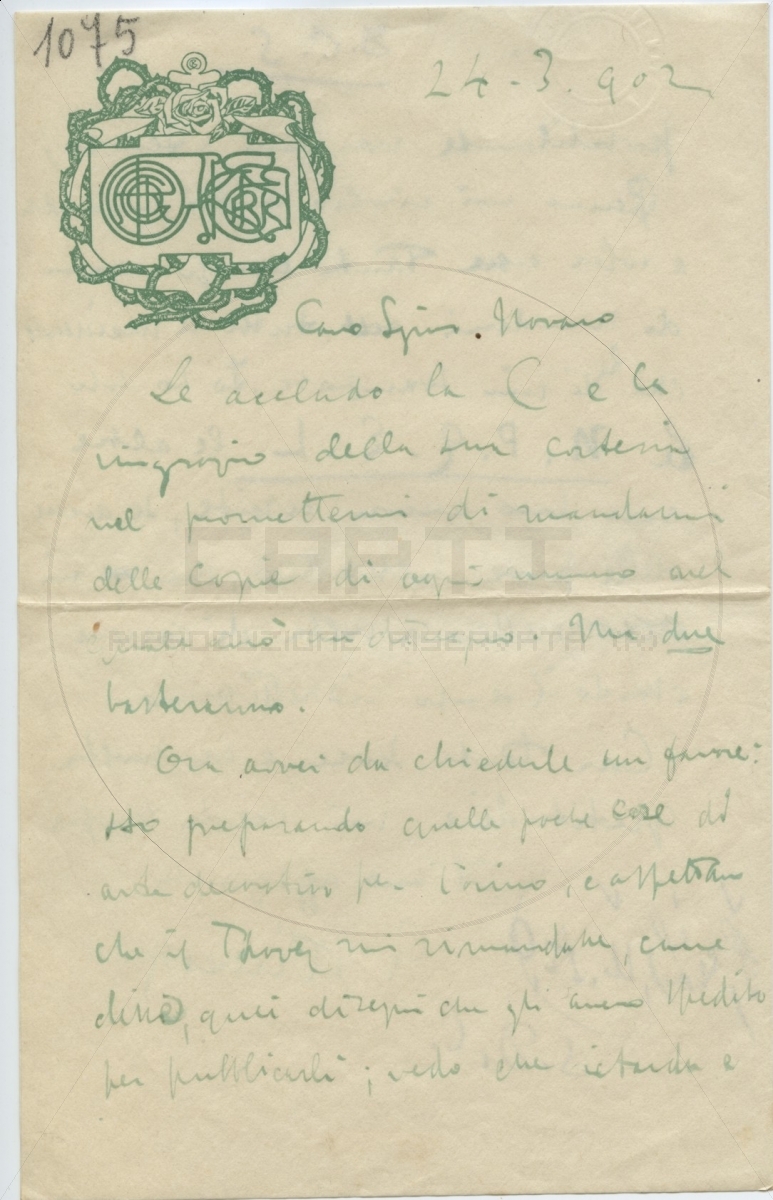 1075
24-3.902
Caro Sign. Novaro
Le accludo la C e la
ringrazio della sua cortesia
nel promettermi di mandarmi
delle copie di ogni numero nel
quale avrò un disegno. Ma due
basteranno.
Ora avrei da chiederle un favore:
sto preparando quelle poche cose di
arte decorativa per Torino, e aspettavo
che il Thovez mi rimandasse, come
disse, quei disegni che gli avevo spedito
per pubblicarli; vedo che ritarda e
CAPTI
RIPRODUZIONE RISERVATA